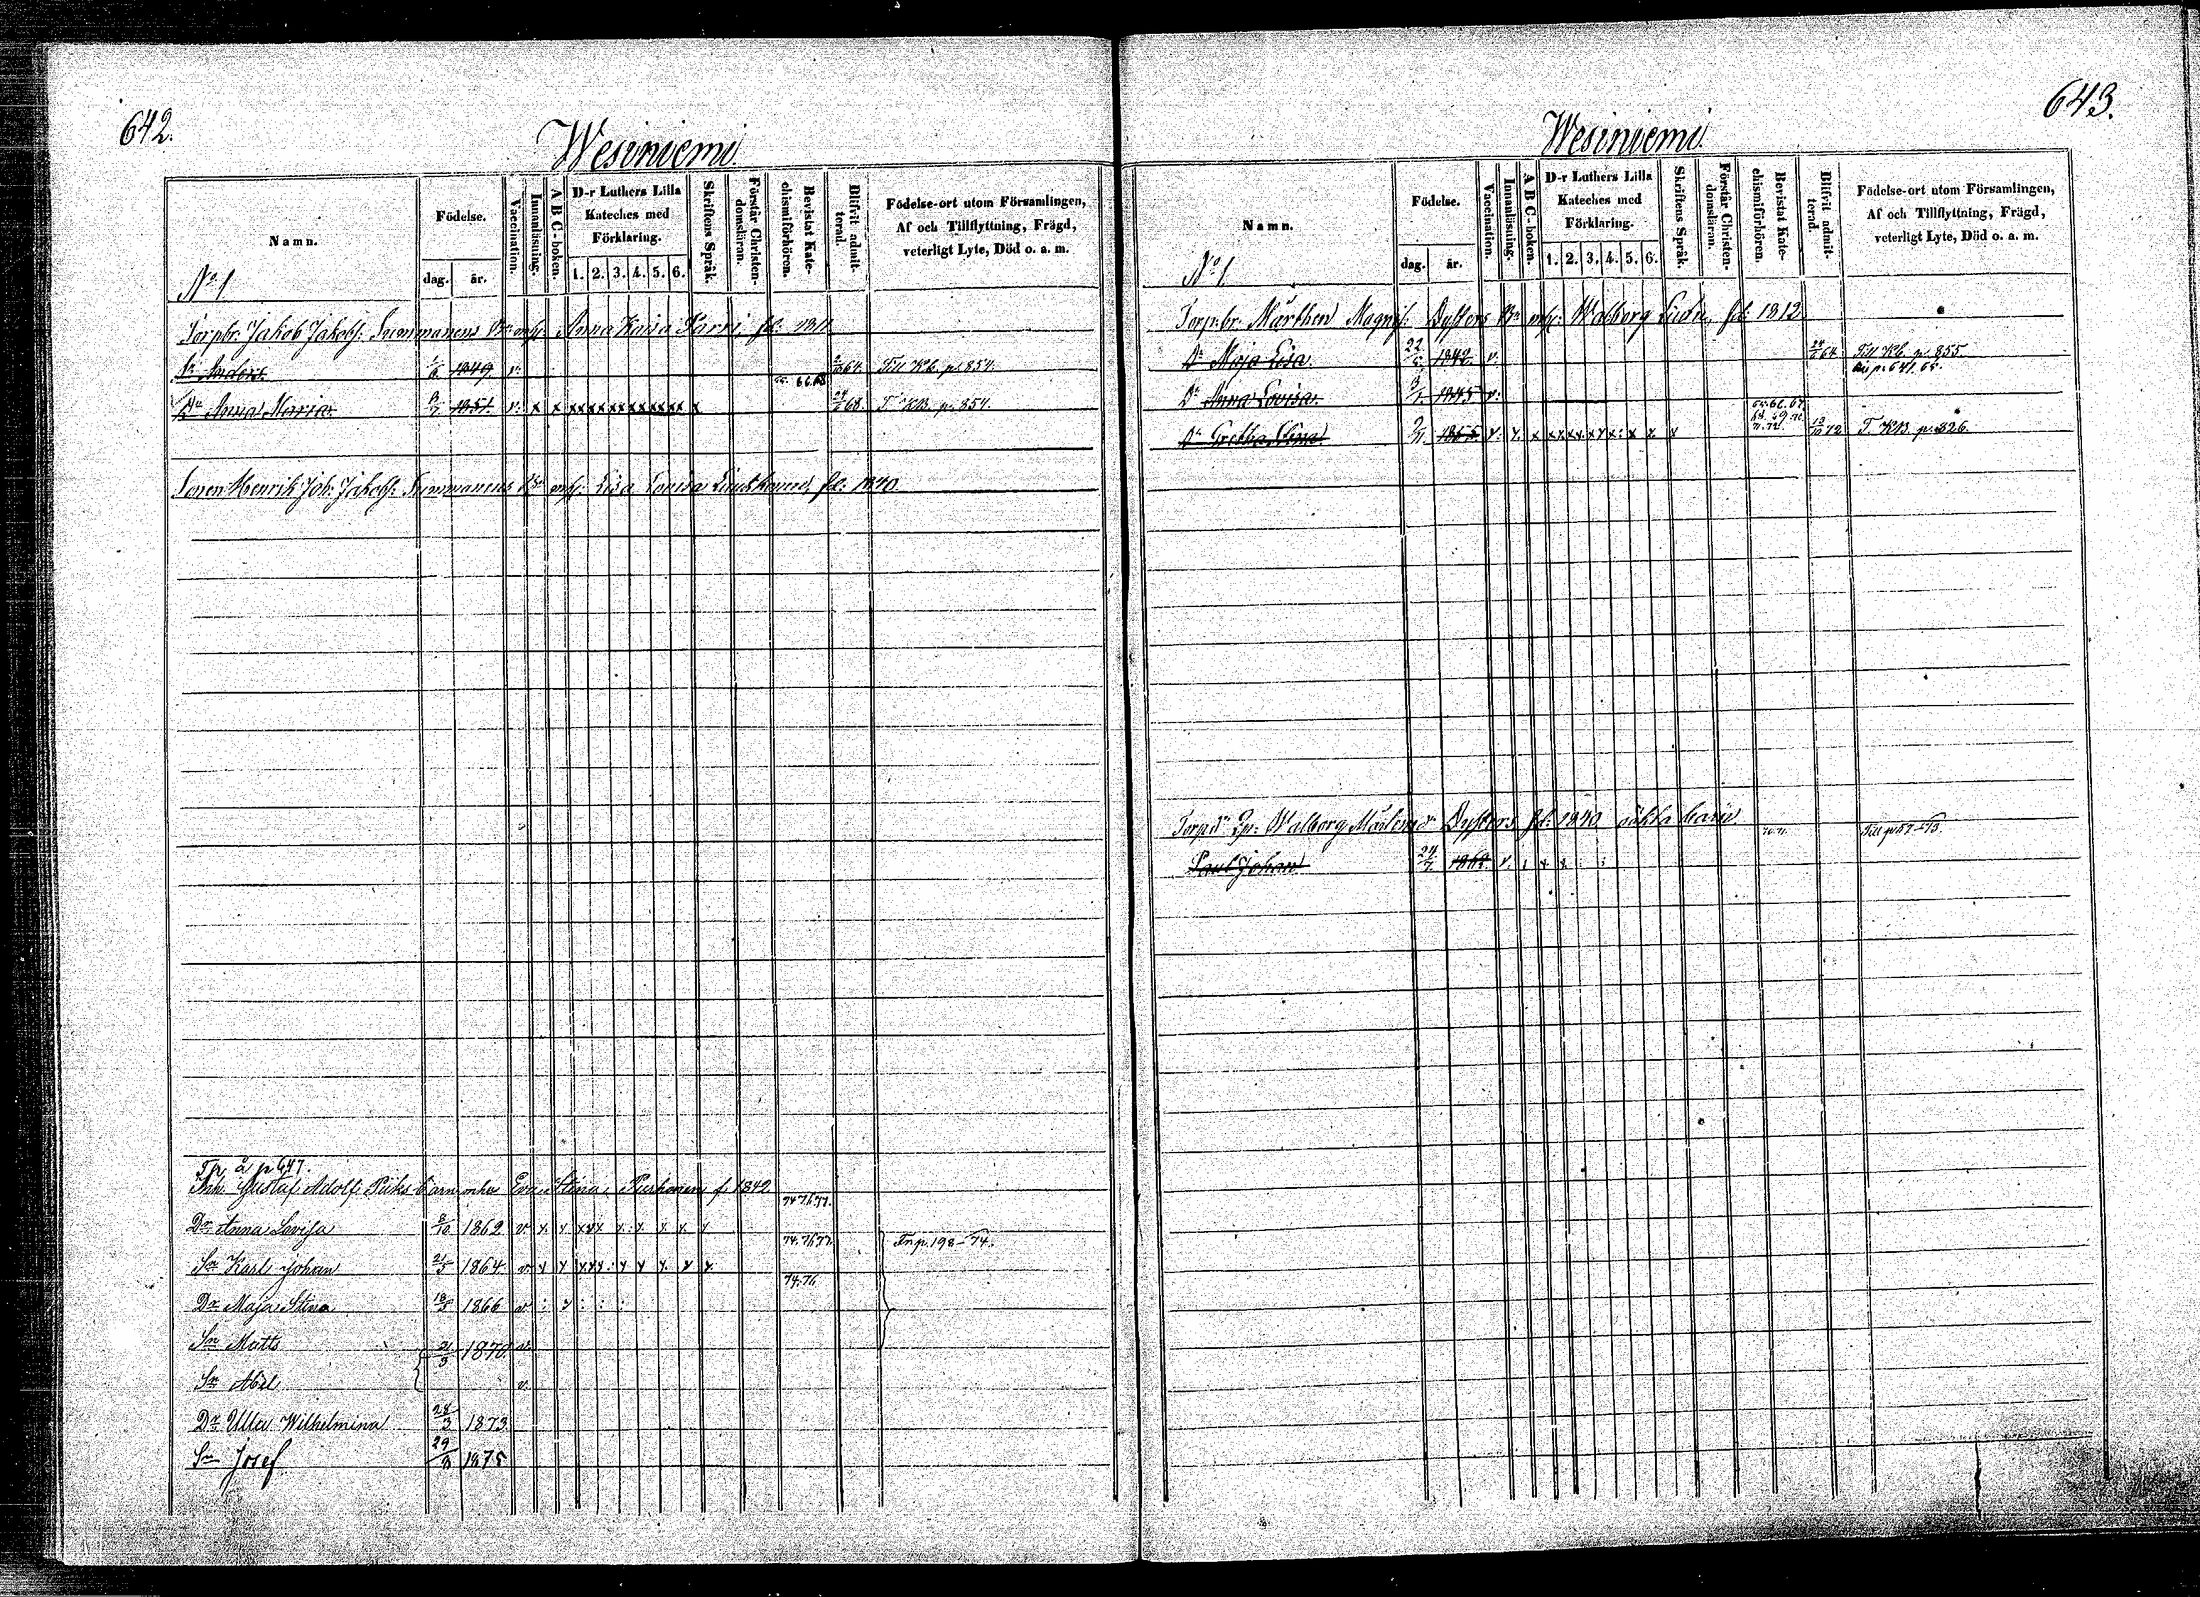 642.
Wesiniemi.
Namn.
Födelse.
dag. år.
Vaccination.
Innanläsning.
A B C-boken.
D-r Luthers Lilla
Kateches med
Förklaring.
1. 2. 3. 4. 5. 6.
Skriftens Språk.
Förstår Christen-
domsläran.
Bevistat Kate-
chismiförhören.
Blifvit admit-
terad.
Födelse-ort utom Församlingen,
Af och Tillflyttning, Frägd,
veterligt Lyte, Död o. a. m.
No 1
Torpbr. Jakob Jakobs: Bn Anna Kaisa fd: 1811
Sn Anders. 1849. v. 64. Till KB. p. 854.
Dr Anna Maria 1851 v. x x xx xx xx xx xx xx x 66.68 68. T. KB. p. 854.
Sonen Henrik Joh: Jakobs: Bn Lisa Lovisa fd: 1840
Tr å p 647.
Gustaf Adolf barn Eva Stina f. 1842
74.76.77.
Dr Anna Lovisa 8/10 1862 v. x x xxx x x x x x
74.76.77.
Sn Karl Johan 21/5 1864 v. x x xxx x x x x x Fr. p. 198-74.
74.76.
Dr Maja Stina 18/5 1866 v : x : : :
Sn Matts 21/3 1870. v.
Sn Abel v.
Dr Ulla Wilhelmina 28/3 1873.
Sn Josef 29/8 1875
643.
Wesiniemi.
Namn.
Födelse.
dag. år.
Vaccination.
Innanläsning.
A B C-boken.
D-r Luthers Lilla
Kateches med
Förklaring.
1. 2. 3. 4. 5. 6.
Skriftens Språk.
Förstår Christen-
domsläran.
Bevistat Kate-
chismiförhören.
Blifvit admit-
terad.
Födelse-ort utom Församlingen,
Af och Tillflyttning, Frägd,
veterligt Lyte, Död o. a. m.
No 1.
Torp.br. Mårthen Magns: Dysters Bn Walborg fd: 1812
Dr Maja Lisa. 1842. v. 64 Till KB. p. 855.
p. 641. 65.
Dr Anna Lovisa. 1845 v.
65.66.67.
Dr Gretha Stina 1855 v. x. x x x. x x. x x : x x. x 71.72. 72 T. KB. p. 826.
Torp.dr Walborg Mårtensdr Dysters fd: 1840 oäkta barn
70.71. Till p. 157-73.
Paul Johan 24/7. 1862. v. : x x : :